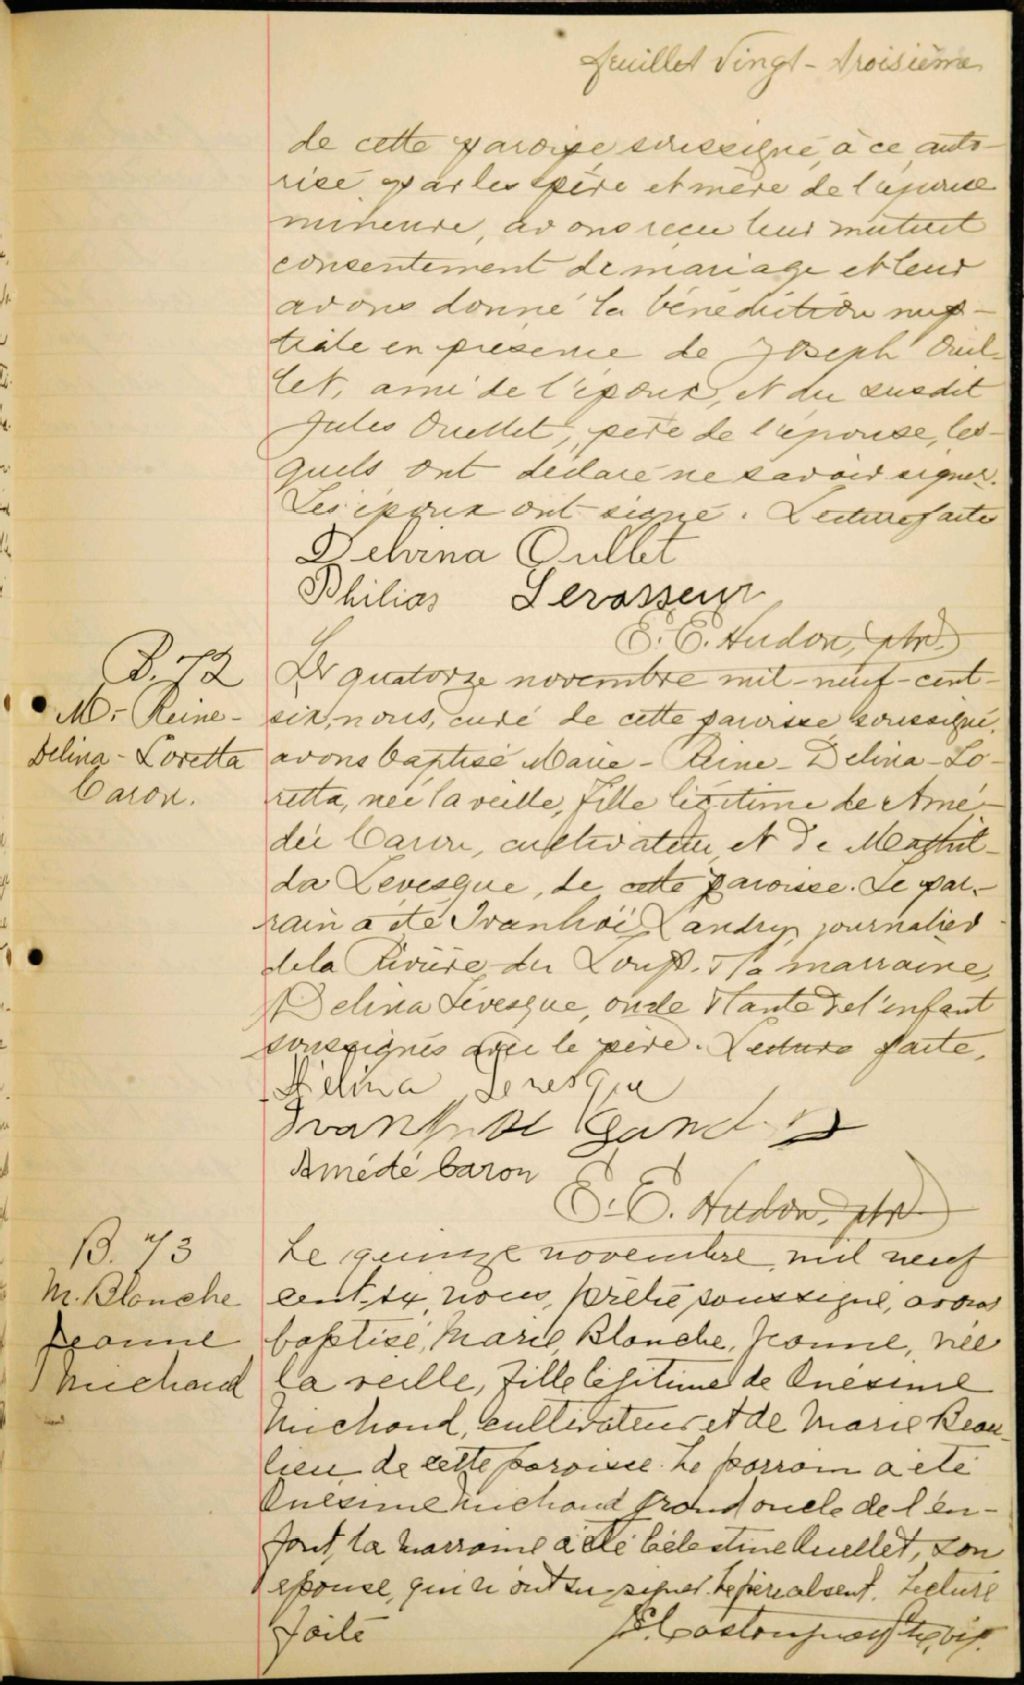 feuillet Vingt-troisième
de cette paroisse soussigné, à ce auto-
risé par les père et mère de l'épouse
mineure, avons reçu leur mutuel
consentement de mariage et leur
avons donné la bénédiction nup-
tiale en présence de Joseph Ouel-
let, ami de l'époux, et du susdit
Jules Ouellet, père de l'épouse, les-
quels ont déclaré ne savoir signer.
Les époux ont signé. Lecture faite
Delvina Oullet
Philias Levasseur
E. E. Hudon, ptre.
B. 72
M.- Reine-
Delina-Loretta
Caron.
Le quatorze novembre mil-neuf-cent-
six, nous, curé de cette paroisse soussigné,
avons baptisé Marie-Reine-Delina-Lo-
retta, née la veille, fille légitime de Amé-
dée Caron, cultivateur et de Mathil-
da Lévesque, de cette paroisse. Le par-
rain a été Ivanhoë Landry, journalier
de la Rivière du Loup. & la marraine,
Delina Lévesque, oncle & tante de l'enfant
soussignés avec le père. Lecture faite.
Délina Levesque
Amédé Caron
E. E. Hudon, ptre
B. 73
M. Blanche
Jeanne
Michaud
Le quinze novembre mil neuf
cent six, nous, prêtre soussigné, avons
baptisé, Marie, Blanche, Jeanne, née
la veille, fille légitime de Onésime
Michaud, cultivateur et de Marie Beau-
lieu de cette paroisse. Le parrain a été
Onésime Michaud grand oncle de l'en-
fant, la marraine a été Célestine Ouellet, son
épouse, qui n'ont su signer. Le père absent. Lecture
faite
Castonguay Ptre, vic.